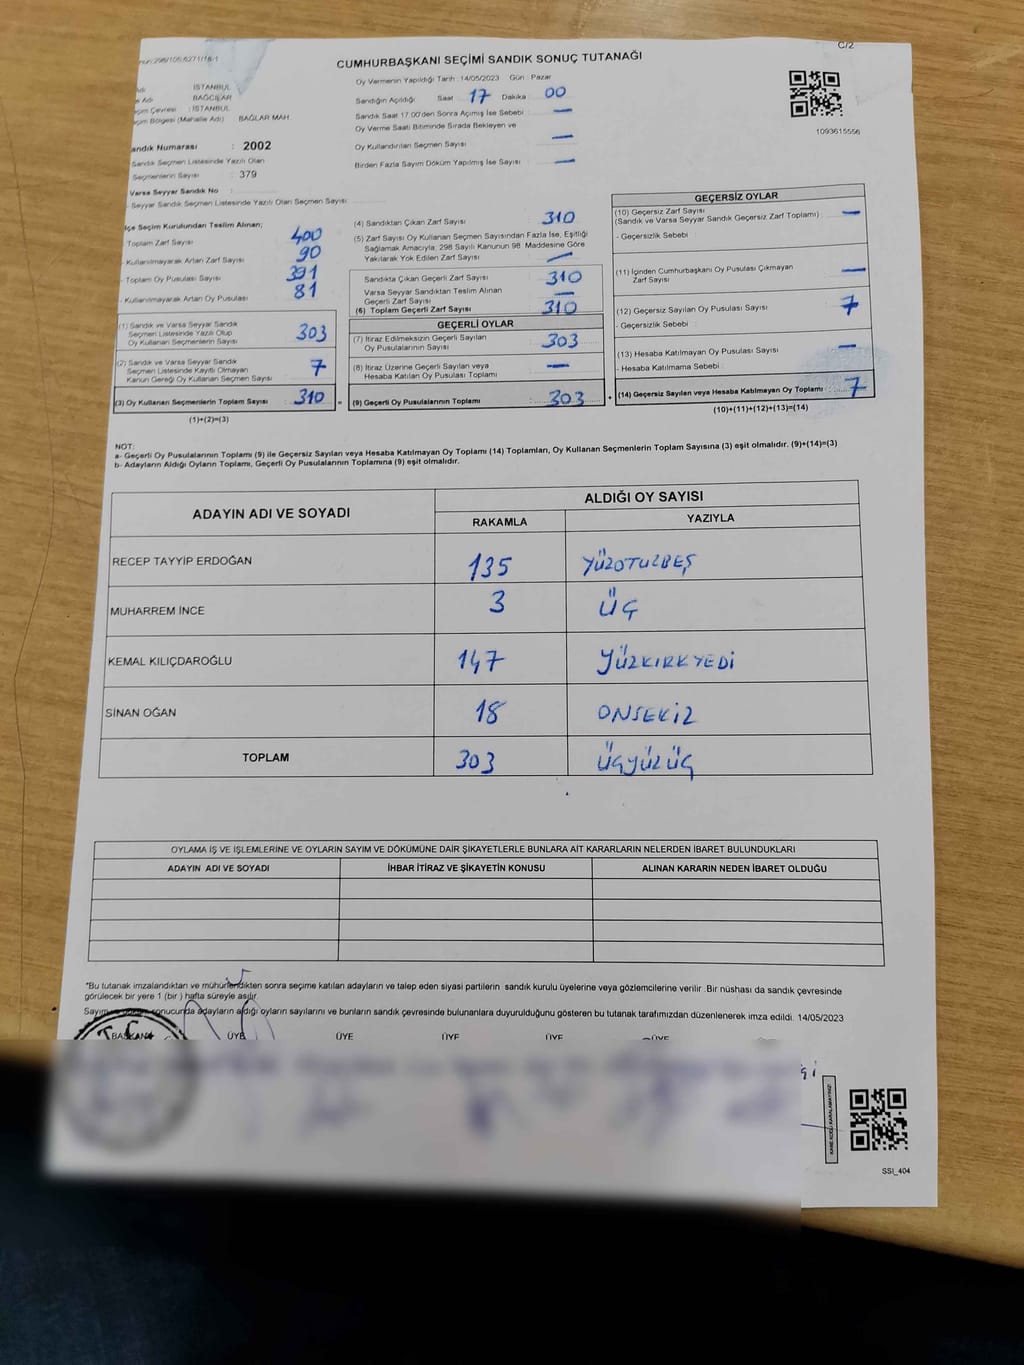 C/2
CUMHURBAŞKANI SEÇİMİ SANDIK SONUÇ TUTANAĞI
İSTANBUL
BAĞCILAR
: İSTANBUL
Bölgesi (Mahalle Adı) BAĞLAR MAH.
Sandık Numarası : 2002
Sandık Seçmen Listesinde Yazılı Olan
Seçmenlerin Sayısı : 379
Varsa Seyyar Sandık No :
- Seyyar Sandık Seçmen Listesinde Yazılı Olan Seçmen Sayısı :
Oy Vermenin Yapıldığı Tarih : 14/05/2023 Gün : Pazar
Sandığın Açıldığı Saat : 17 Dakika : 00
Sandık Saat 17.00'den Sonra Açılmış İse Sebebi : —
Oy Verme Saati Bitiminde Sırada Bekleyen ve
Oy Kullandırılan Seçmen Sayısı : —
Birden Fazla Sayım Döküm Yapılmış İse Sayısı : —
1093615556
İlçe Seçim Kurulundan Teslim Alınan;
- Toplam Zarf Sayısı : 400
- Kullanılmayarak Artan Zarf Sayısı : 90
- Toplam Oy Pusulası Sayısı : 391
- Kullanılmayarak Artan Oy Pusulası : 81
(1) Sandık ve Varsa Seyyar Sandık
Seçmen Listesinde Yazılı Olup
Oy Kullanan Seçmenlerin Sayısı : 303
(2) Sandık ve Varsa Seyyar Sandık
Seçmen Listesinde Kayıtlı Olmayan
Kanun Gereği Oy Kullanan Seçmen Sayısı : 7
(3) Oy Kullanan Seçmenlerin Toplam Sayısı : 310
(1)+(2)=(3)
(4) Sandıktan Çıkan Zarf Sayısı : 310
(5) Zarf Sayısı Oy Kullanan Seçmen Sayısından Fazla İse, Eşitliği
Sağlamak Amacıyla, 298 Sayılı Kanunun 98. Maddesine Göre
Yakılarak Yok Edilen Zarf Sayısı : —
Sandıkta Çıkan Geçerli Zarf Sayısı : 310
Varsa Seyyar Sandıktan Teslim Alınan
Geçerli Zarf Sayısı : —
(6) Toplam Geçerli Zarf Sayısı : 310
GEÇERLİ OYLAR
(7) İtiraz Edilmeksizin Geçerli Sayılan
Oy Pusulalarının Sayısı : 303
(8) İtiraz Üzerine Geçerli Sayılan veya
Hesaba Katılan Oy Pusulası Toplamı : —
= (9) Geçerli Oy Pusulalarının Toplamı : 303 +
GEÇERSİZ OYLAR
(10) Geçersiz Zarf Sayısı
(Sandık ve Varsa Seyyar Sandık Geçersiz Zarf Toplamı) : —
- Geçersizlik Sebebi :
(11) İçinden Cumhurbaşkanı Oy Pusulası Çıkmayan
Zarf Sayısı : —
(12) Geçersiz Sayılan Oy Pusulası Sayısı : 7
- Geçersizlik Sebebi :
(13) Hesaba Katılmayan Oy Pusulası Sayısı : —
- Hesaba Katılmama Sebebi :
(14) Geçersiz Sayılan veya Hesaba Katılmayan Oy Toplamı : 7
(10)+(11)+(12)+(13)=(14)
NOT:
a- Geçerli Oy Pusulalarının Toplamı (9) ile Geçersiz Sayılan veya Hesaba Katılmayan Oy Toplamı (14) Toplamları, Oy Kullanan Seçmenlerin Toplam Sayısına (3) eşit olmalıdır. (9)+(14)=(3)
b- Adayların Aldığı Oyların Toplamı, Geçerli Oy Pusulalarının Toplamına (9) eşit olmalıdır.
ADAYIN ADI VE SOYADI
ALDIĞI OY SAYISI
RAKAMLA YAZIYLA
RECEP TAYYİP ERDOĞAN 135 YÜZOTUZBEŞ
MUHARREM İNCE 3 ÜÇ
KEMAL KILIÇDAROĞLU 147 YÜZKIRKYEDİ
SİNAN OĞAN 18 ONSEKİZ
TOPLAM 303 ÜÇYÜZÜÇ
OYLAMA İŞ VE İŞLEMLERİNE VE OYLARIN SAYIM VE DÖKÜMÜNE DAİR ŞİKAYETLERLE BUNLARA AİT KARARLARIN NELERDEN İBARET BULUNDUKLARI
ADAYIN ADI VE SOYADI İHBAR İTİRAZ VE ŞİKAYETİN KONUSU ALINAN KARARIN NEDEN İBARET OLDUĞU
*Bu tutanak imzalandıktan ve mühürlendikten sonra seçime katılan adayların ve talep eden siyasi partilerin sandık kurulu üyelerine veya gözlemcilerine verilir .Bir nüshası da sandık çevresinde
görülecek bir yere 1 (bir ) hafta süreyle asılır.
Sayım sonucunda adayların aldığı oyların sayılarını ve bunların sandık çevresinde bulunanlara duyurulduğunu gösteren bu tutanak tarafımızdan düzenlenerek imza edildi. 14/05/2023
BAŞKAN ÜYE ÜYE ÜYE ÜYE ÜYE
T.C.
KARE KODU KARALAMAYINIZ!
SSI_404